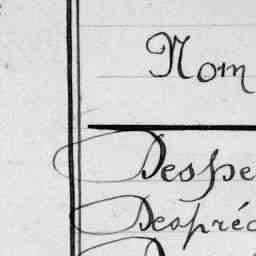 Nom
Despe
Despré